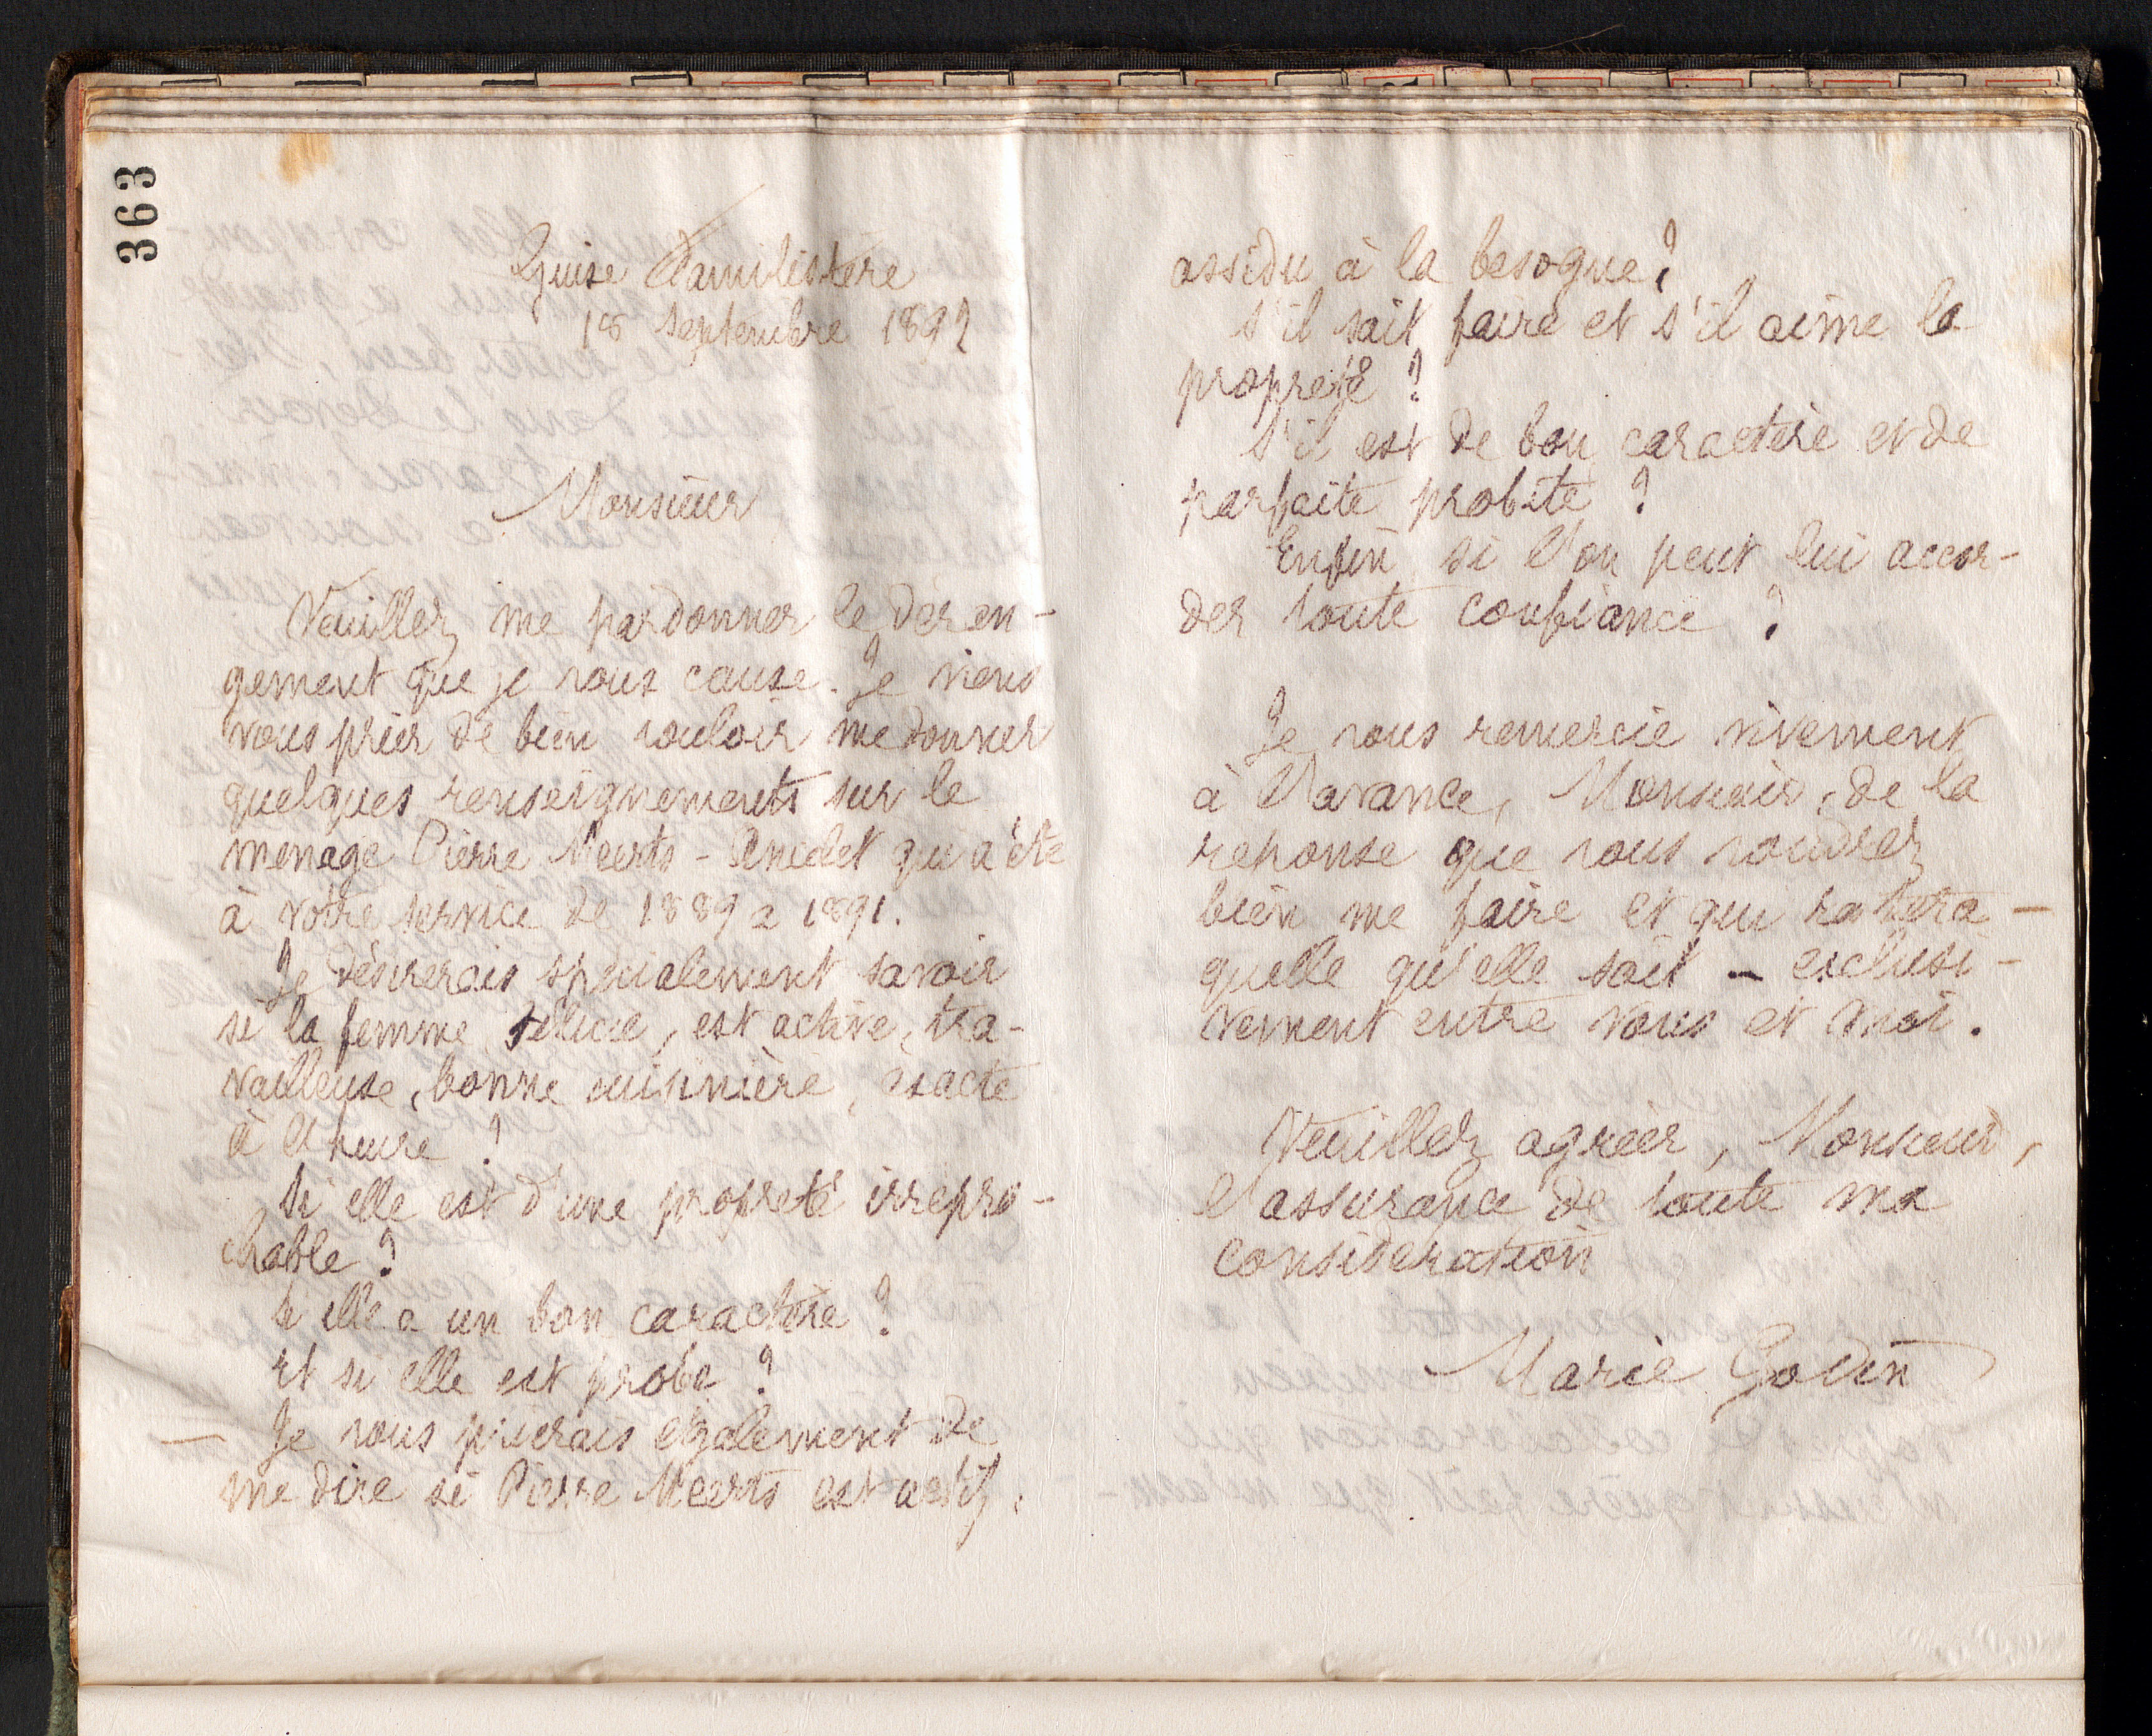 363
Guise Familistère
18 septembre 1892
Monsieur
Veuillez me pardonner le déran-
gement que je vous cause. Je viens
vous prier de bien vouloir me donner
quelques renseignements sur le
ménage Pierre Meerts - Anedet qui a été
à votre service de 1889 a 1891.
Je désirerais spécialement savoir
si la femme, Félicie, est active, tra-
vailleuse, bonne cuisinière, exacte
à l'heure ?
Si elle est d'une propreté irrépro-
chable ?
Si elle a un bon caractère ?
Et si elle est probe ?
— Je vous prierais également de
me dire si Pierre Meerts est actif,
assidu à la besogne ?
S'il sait faire et s'il aime la
propreté ?
S'il est de bon caractère et de
parfaite probité ?
Enfin si l'on peut lui accor-
der toute confiance ?
Je vous remercie vivement
à l'avance, Monsieur, de la
réponse que vous voudrez
bien me faire et qui restera —
quelle qu'elle soit — exclusi-
vement entre vous et moi.
Veuillez agréer, Monsieur,
l'assurance de toute ma
considération
Marie Godin